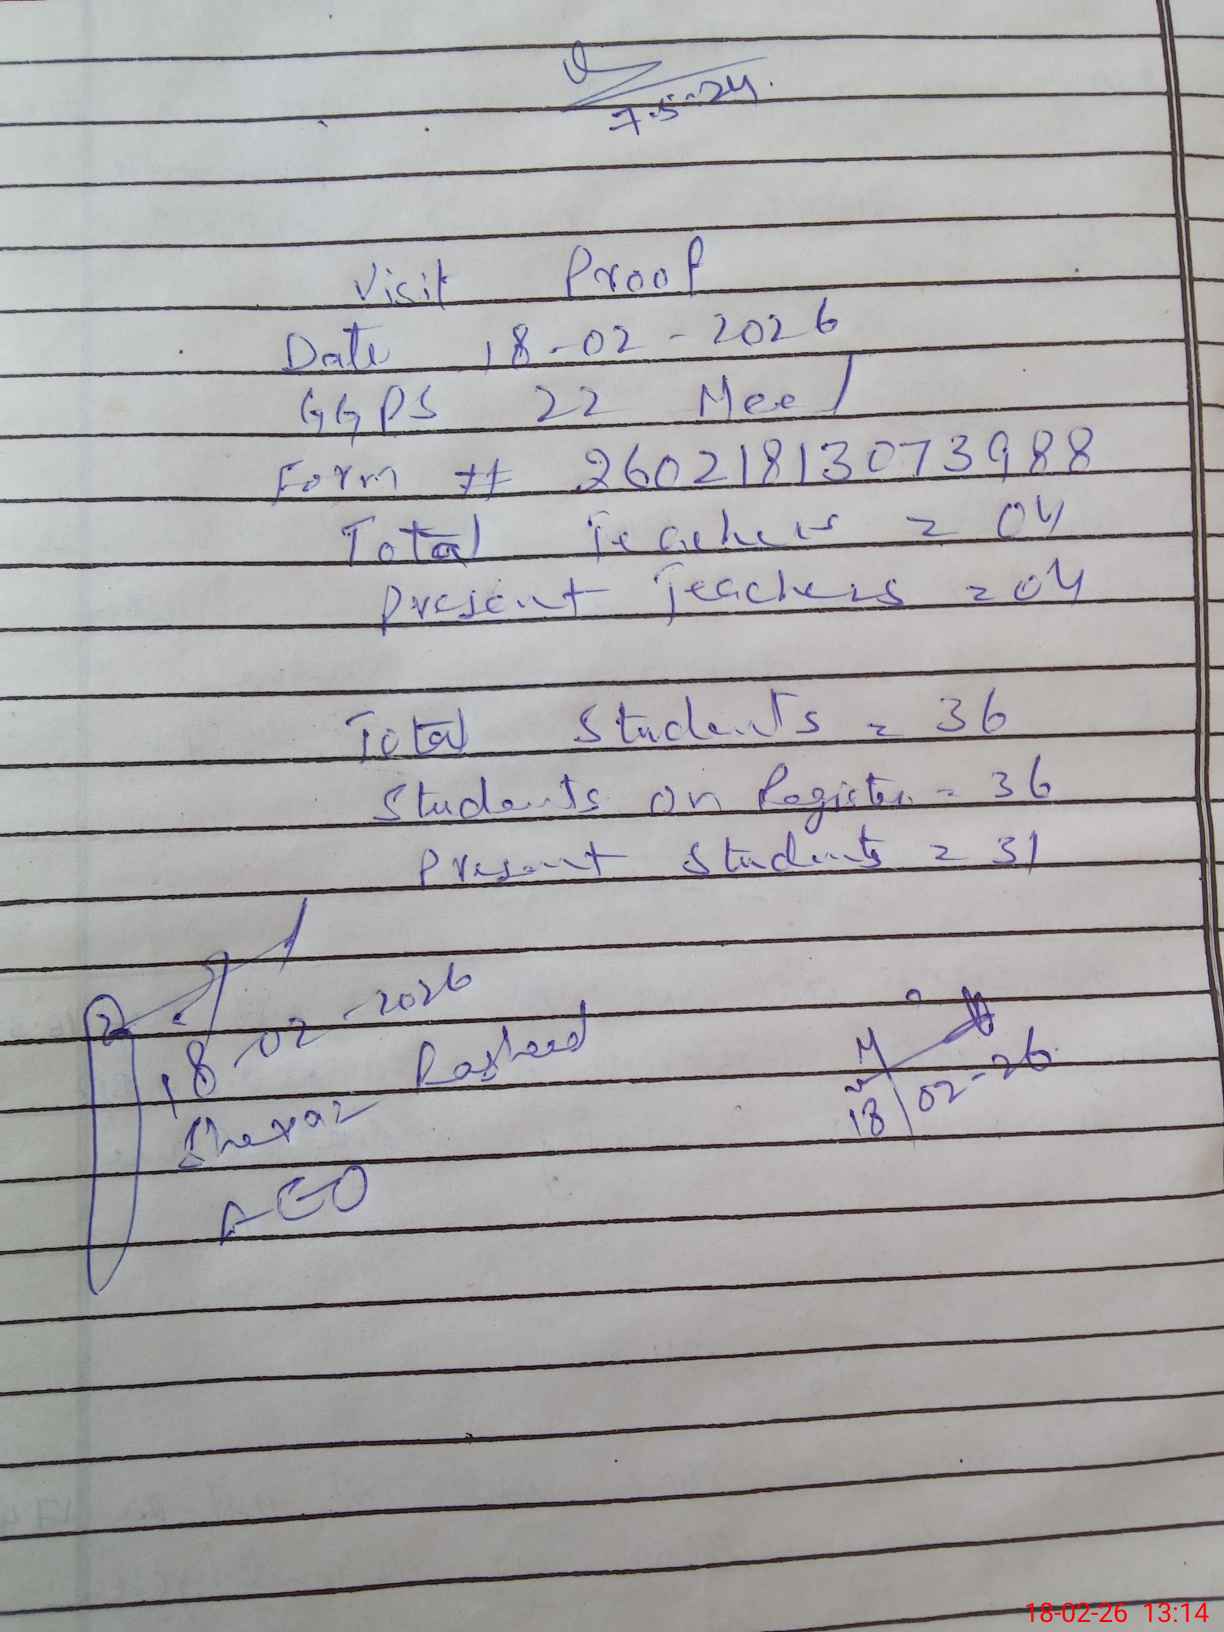 7.5.24.
Visit Proof
Date 18-02-2026
GGPS 22 Meel
Form # 26021813073988
Total Teachers = 04
Present Teachers = 04
Total Students = 36
Students on Register = 36
Present Students = 31
18-02-2026
Sheraz Rasheed
AEO
18/02-26
18-02-26 13:14